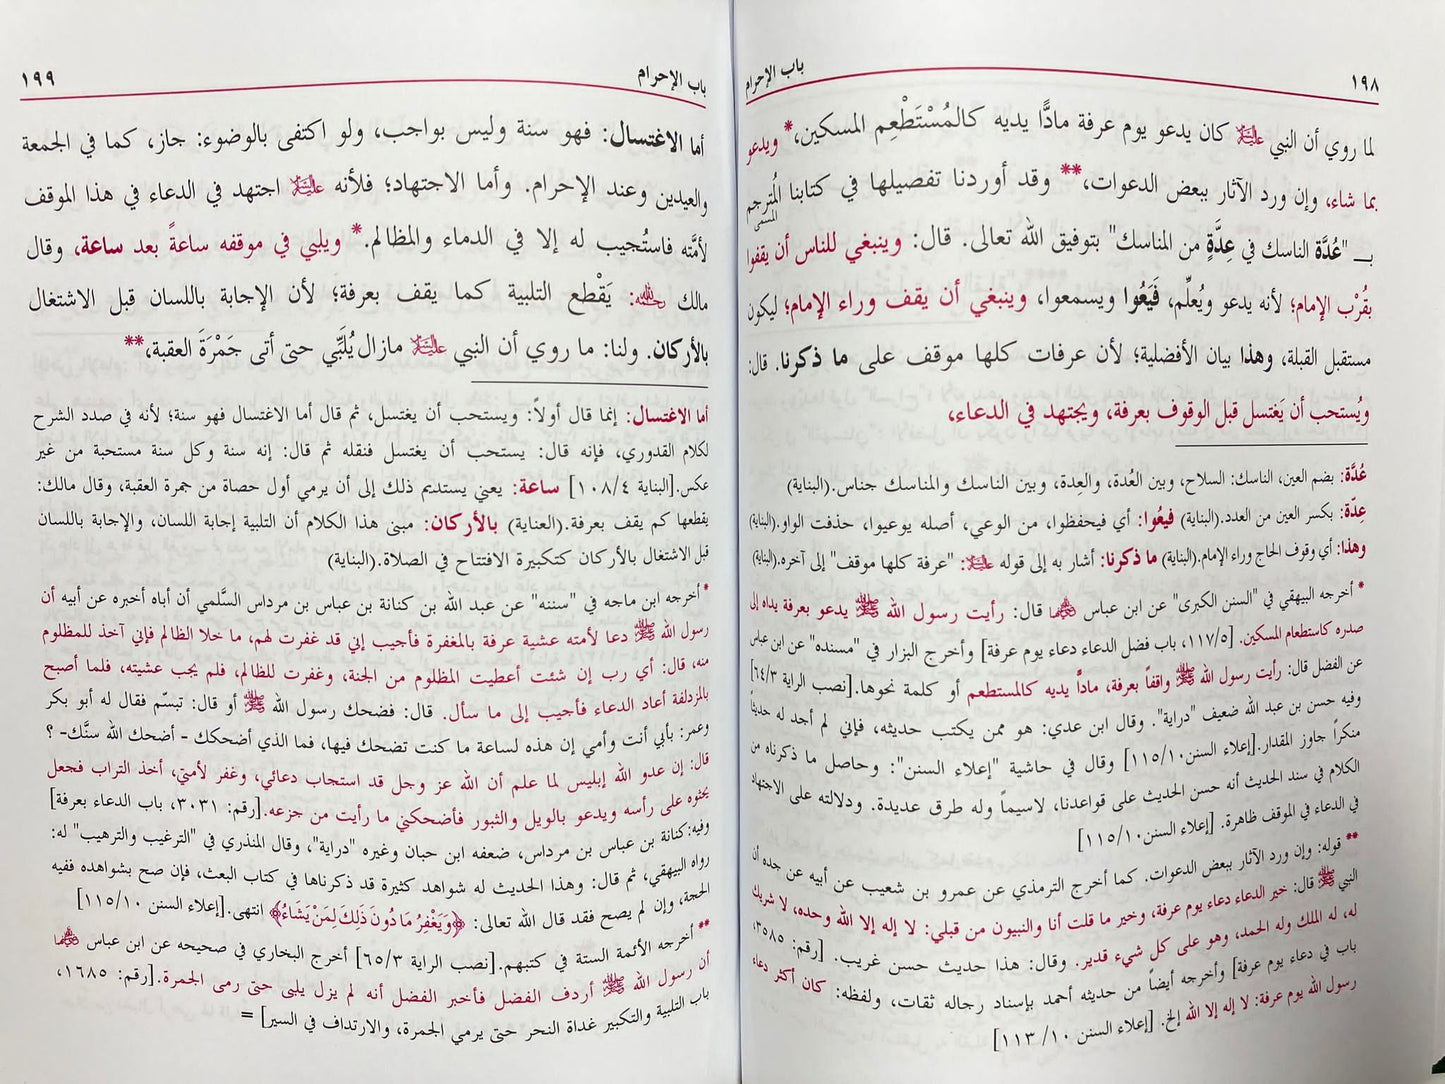 باب الإحرام
١٩٨
لما روي أن النبي عليه السلام كان يدعو يوم عرفة مادًّا يديه كالمُسْتَطْعِم المسكين،* ويدعو
بما شاء، وإن ورد الآثار ببعض الدعوات،** وقد أوردنا تفصيلها في كتابنا المُترجم المسمى
بـ "عُدَّة الناسك في عِدَّةٍ من المناسك" بتوفيق الله تعالى. قال: وينبغي للناس أن يقفوا
بقُرْب الإمام؛ لأنه يدعو ويُعلّم، فَيَعُوا ويسمعوا، وينبغي أن يقف وراء الإمام؛ ليكون
مستقبل القبلة، وهذا بيان الأفضلية؛ لأن عرفات كلها موقف على ما ذكرنا. قال:
ويُستحب أن يَغتسل قبل الوقوف بعرفة، ويجتهد في الدعاء،
عُدَّة: بضم العين، الناسك: السلاح، وبين العُدة، والعِدة، وبين الناسك والمناسك جناس.(البناية)
عِدّة: بكسر العين من العدد.(البناية) فيعُوا: أي فيحفظوا، من الوعي، أصله يوعيوا، حذفت الواو.(البناية)
وهذا: أي وقوف الحاج وراء الإمام.(البناية) ما ذكرنا: أشار به إلى قوله عليه السلام: "عرفة كلها موقف" إلى آخره.(البناية)
* أخرجه البيهقي في "السنن الكبرى" عن ابن عباس رضي الله عنهما قال: رأيت رسول الله ﷺ يدعو بعرفة يداه إلى
صدره كاستطعام المسكين. [١١٧/٥، باب فضل الدعاء دعاء يوم عرفة] وأخرج البزار في "مسنده" عن ابن عباس
عن الفضل قال: رأيت رسول الله ﷺ واقفاً بعرفة، مادًّا يديه كالمستطعم أو كلمة نحوها.[نصب الراية ٦٤/٣]
وفيه حسن بن عبد الله ضعيف "دراية". وقال ابن عدي: هو ممن يكتب حديثه، فإني لم أجد له حديثاً
منكراً جاوز المقدار.[إعلاء السنن ١١٥/١٠] وقال في حاشية "إعلاء السنن": وحاصل ما ذكرناه من
الكلام في سند الحديث أنه حسن الحديث على قواعدنا، لاسيماً وله طرق عديدة. ودلالته على الاجتهاد
في الدعاء في الموقف ظاهرة. [إعلاء السنن ١١٥/١٠]
** قوله: وإن ورد الآثار ببعض الدعوات. كما أخرج الترمذي عن عمرو بن شعيب عن أبيه عن جده أن
النبي ﷺ قال: خير الدعاء دعاء يوم عرفة، وخير ما قلت أنا والنبيون من قبلي: لا إله إلا الله وحده، لا شريك
له، له الملك وله الحمد، وهو على كل شيء قدير. وقال: هذا حديث حسن غريب. [رقم: ٣٥٨٥،
باب في دعاء يوم عرفة] وأخرجه أيضاً من حديثه أحمد بإسناد رجاله ثقات، ولفظه: كان أكثر دعاء
رسول الله يوم عرفة: لا إله إلا الله إلخ. [إعلاء السنن ١٠/ ١١٣]
باب الإحرام
١٩٩
أما الاغتسال: فهو سنة وليس بواجب، ولو اكتفى بالوضوء: جاز، كما في الجمعة
والعيدين وعند الإحرام. وأما الاجتهاد؛ فلأنه عليه السلام اجتهد في الدعاء في هذا الموقف
لأمَّته فاستُجيب له إلا في الدماء والمظالم.* ويلبي في موقفه ساعةً بعد ساعة، وقال
مالك رحمه الله: يَقْطع التلبية كما يقف بعرفة؛ لأن الإجابة باللسان قبل الاشتغال
بالأركان. ولنا: ما روي أن النبي عليه السلام مازال يُلَبِّي حتى أتى جَمْرَةَ العقبة،**
أما الاغتسال: إنما قال أولاً: ويستحب أن يغتسل، ثم قال أما الاغتسال فهو سنة؛ لأنه في صدد الشرح
لكلام القدوري، فإنه قال: يستحب أن يغتسل فنقله ثم قال: إنه سنة وكل سنة مستحبة من غير
عكس.[البناية ١٠٨/٤] ساعة: يعني يستديم ذلك إلى أن يرمي أول حصاة من جمرة العقبة، وقال مالك:
يقطعها كم يقف بعرفة.(العناية) بالأركان: مبنى هذا الكلام أن التلبية إجابة اللسان، والإجابة باللسان
قبل الاشتغال بالأركان كتكبيرة الافتتاح في الصلاة.(البناية)
* أخرجه ابن ماجه في "سننه" عن عبد الله بن كنانة بن عباس بن مرداس السَّلمي أن أباه أخبره عن أبيه أن
رسول الله ﷺ دعا لأمته عشية عرفة بالمغفرة فأجيب إني قد غفرت لهم، ما خلا الظالم فإني آخذ للمظلوم
منه، قال: أي رب إن شئت أعطيت المظلوم من الجنة، وغفرت للظالم، فلم يجب عشيته، فلما أصبح
بالمزدلفة أعاد الدعاء فأجيب إلى ما سأل. قال: فضحك رسول الله ﷺ أو قال: تبسّم فقال له أبو بكر
وعمر: بأبي أنت وأمي إن هذه لساعة ما كنت تضحك فيها، فما الذي أضحكك - أضحك الله سنَّك- ؟
قال: إن عدو الله إبليس لما علم أن الله عز وجل قد استجاب دعائي، وغفر لأمتي، أخذ التراب فجعل
يحثوه على رأسه ويدعو بالويل والثبور فأضحكني ما رأيت من جزعه.[رقم: ٣٠٣١، باب الدعاء بعرفة]
وفيه:كنانة بن عباس بن مرداس، ضعفه ابن حبان وغيره "دراية"، وقال المنذري في "الترغيب والترهيب" له:
رواه البيهقي، ثم قال: وهذا الحديث له شواهد كثيرة قد ذكرناها في كتاب البعث، فإن صح بشواهده ففيه
الحجة، وإن لم يصح فقد قال الله تعالى: ﴿وَيَغْفِرُ مَا دُونَ ذَلِكَ لِمَنْ يَشَاءُ﴾ انتهى.[إعلاء السنن ١١٥/١٠]
** أخرجه الأئمة الستة في كتبهم.[نصب الراية ٦٥/٣] أخرج البخاري في صحيحه عن ابن عباس رضي الله عنهما
أن رسول الله ﷺ أردف الفضل فأخبر الفضل أنه لم يزل يلبي حتى رمى الجمرة.[رقم: ١٦٨٥،
باب التلبية والتكبير غداة النحر حتى يرمي الجمرة، والارتداف في السير] =